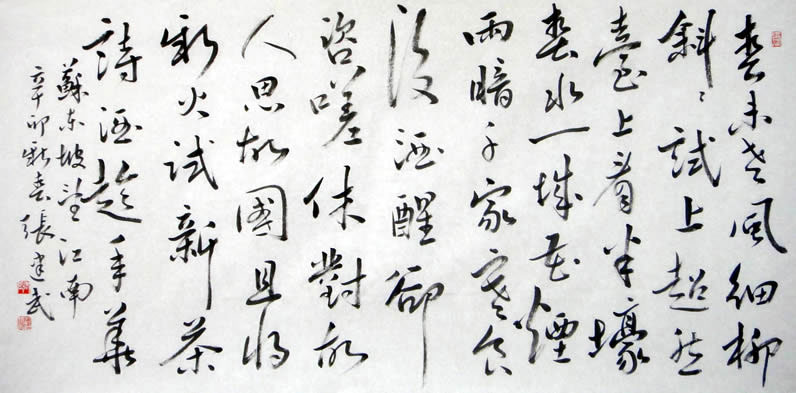 春未老風細柳
斜〻試上超然
臺上看半壕
春水一城花煙
雨暗千家寒食
後酒醒卻
咨嗟休對故
人思故國且將
新火試新茶
詩酒趁年華
蘇東坡望江南
辛卯新春張建武